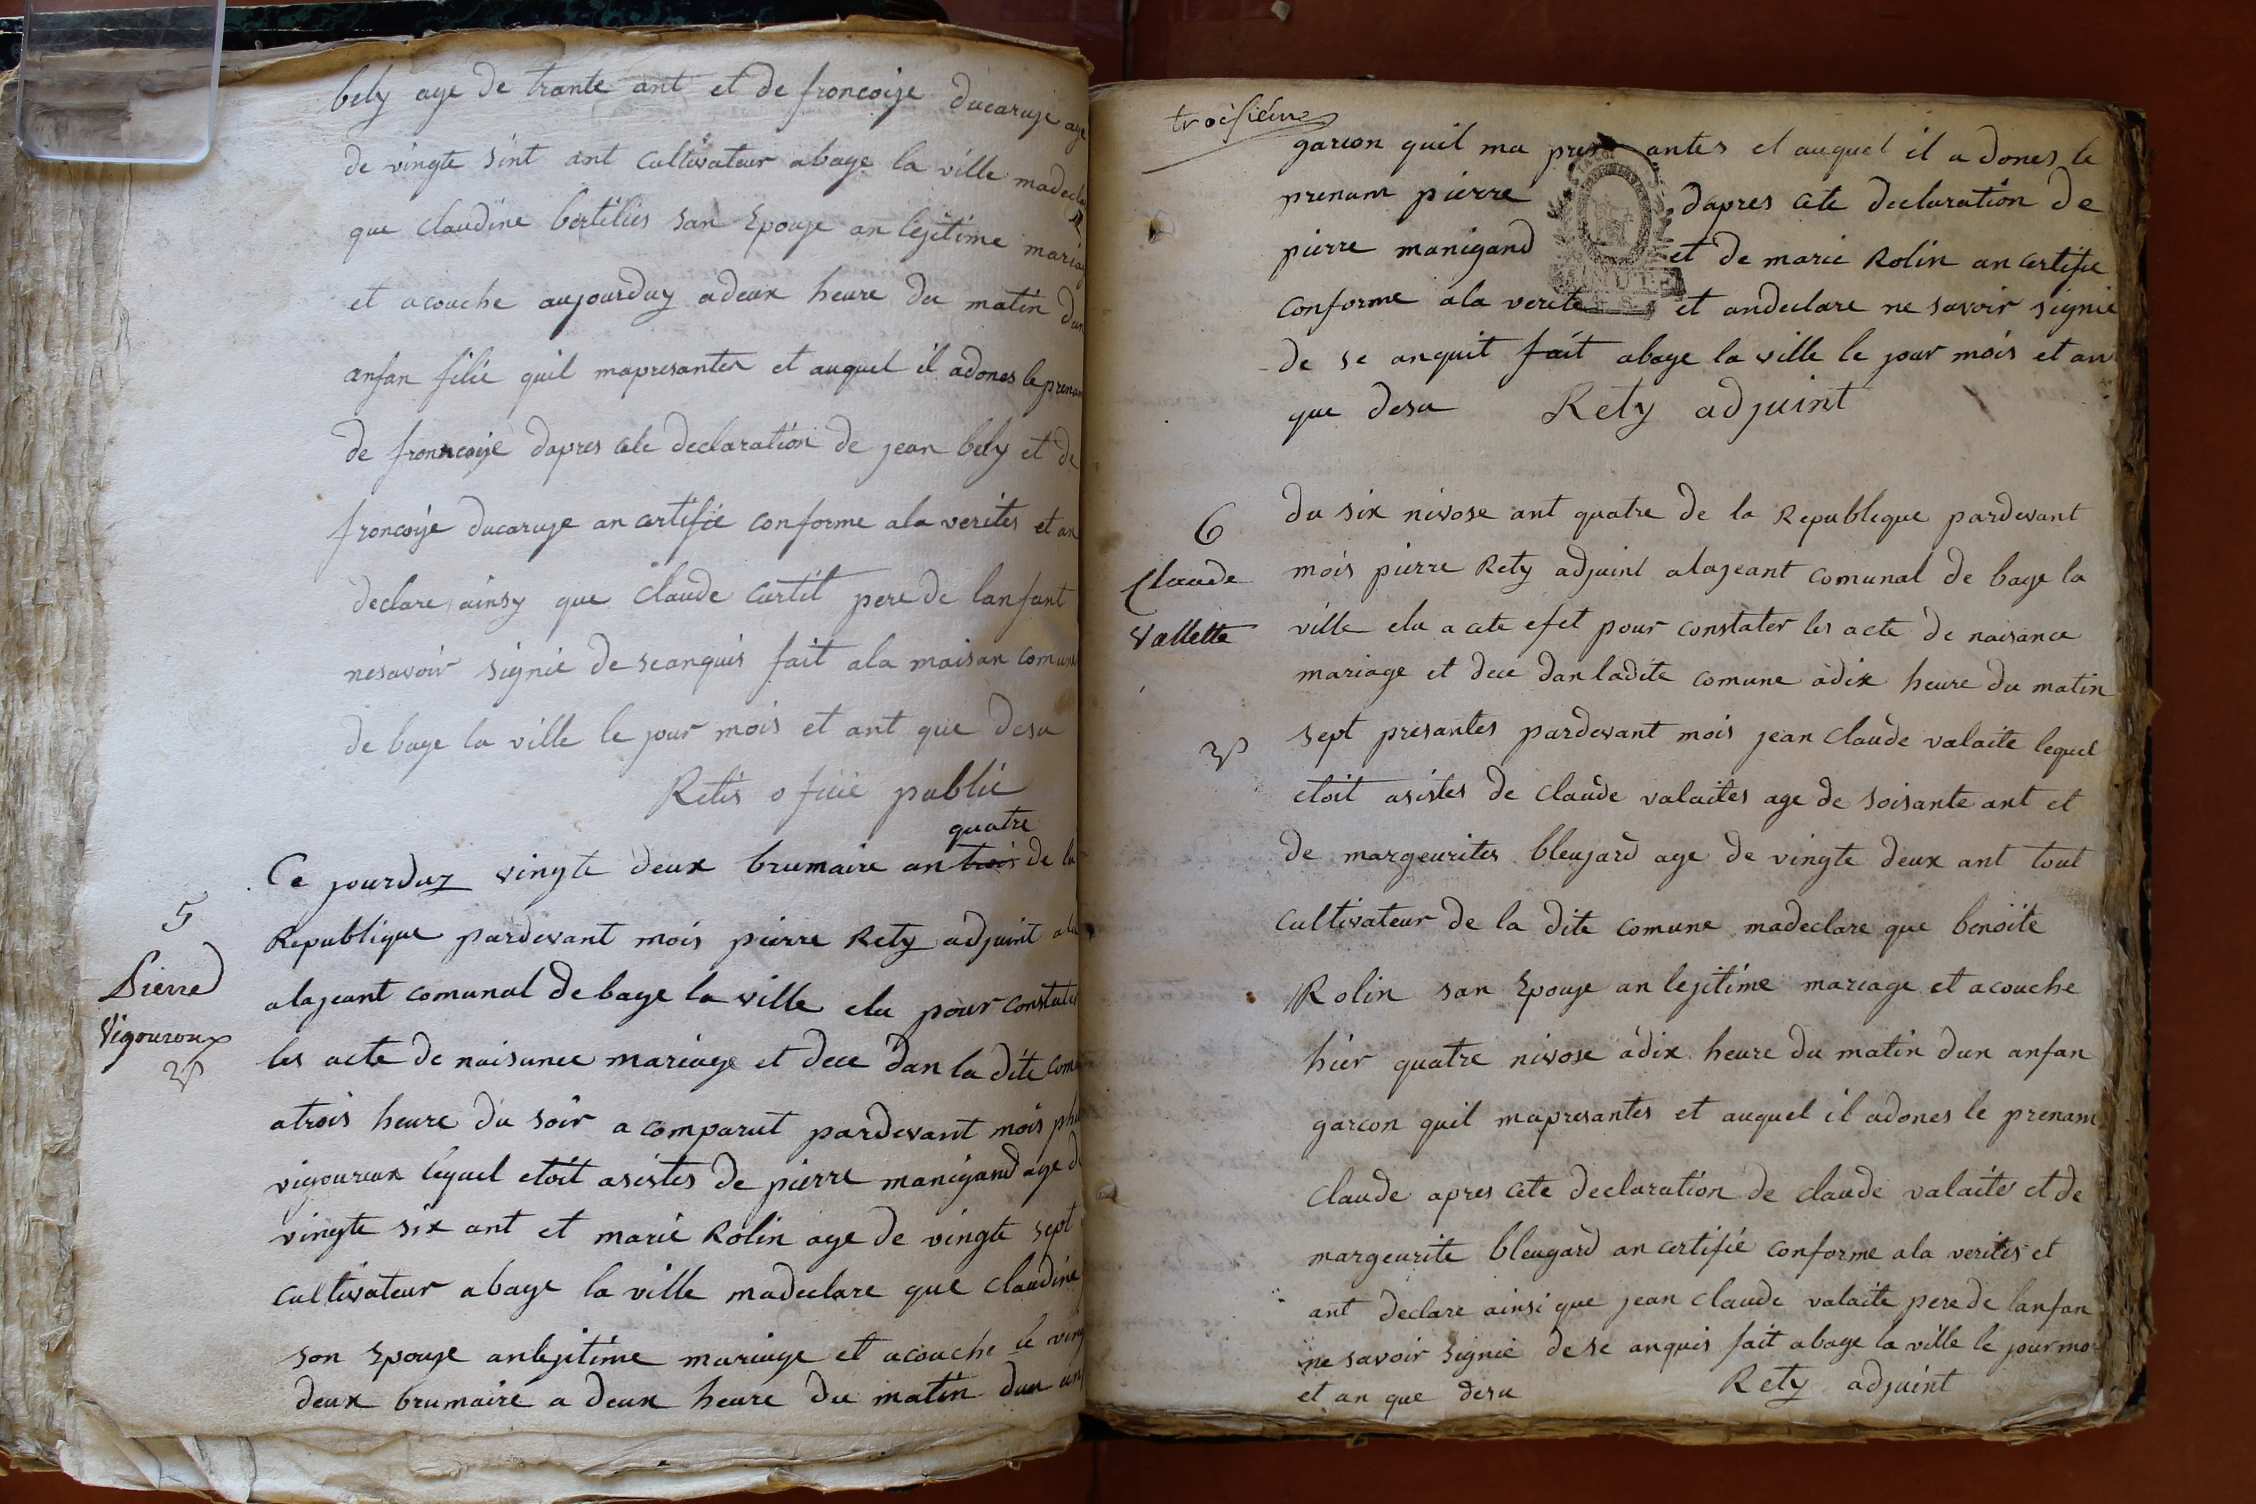 bely age de trante ant et de froncoise ducaruge age
de vingte sint ant cultivateur abage la ville madecla
que claudine bertilies san Epouse an lejitime maria
et acouche aujourduy adeux heure du matin dun
anfan filie quil mapresantes et auquel il adones le prenam
de fronncoise dapres cete declaration de jean bely et de
froncoise ducaruge an certifie conforme ala verites et an
declare ainsy que Claude curtil pere de lanfant
nesavoir signie de seanquis fait ala maisan comune
de bage la ville le jour mois et ant que desu
Retis oficie publié
quatre
Ce jourduy vingte deux brumaire an trois de la
5
Republique pardevant mois pierre Rety adjuint
Pierre
alajeant comunal de bage la ville elu pour constates
Vigouroux
les acte de naisance mariage et dece dan la dite com
atrois heure du soir a comparut pardevant mois
vigoureux lequel etoit asistes de pierre manigand age de
vingte six ant et marie Rolin age de vingte sept
cultivateur abage la ville madeclare que claudine
son Epouse anlejitime mariage et acouche le ving
deux brumaire a deux heure du matin dun an
troisieme
garcon quil ma presantes et auquel il a dones le
prenam pierre dapres cete declaration de
pierre manigand et de marie Rolin an certifie
conforme ala verite et andeclare ne savoir signie
de se anquit fait abage la ville le jour mois et an
que desu Rety adjuint
6
Claude
Vallette
du six nivose ant quatre de la Republeque pardevant
mois pierre Rety adjuint alajeant comunal de bage la
ville elu a cete efet pour constater les acte de naisance
mariage et dece dan ladite comune adix heure du matin
sept presantes pardevant mois jean claude valaite lequel
etoit asistes de claude valaites age de soisante ant et
de margeurites bleujard age de vingte deux ant tout
cultivateur de la dite comune madeclare que benoite
Rolin san Epouse an lejitime mariage et acouche
hier quatre nivose adix heure du matin dun anfan
garcon quil mapresantes et auquel il adones le prenam
claude apres cete declaration de claude valaites et de
margeurite bleugard an certifié conforme ala verites et
ant declare ainsi que jean claude valaite pere de lanfan
ne savoir signie de se anquis fait abage la ville le jour mo
et an que desu Rety adjuint